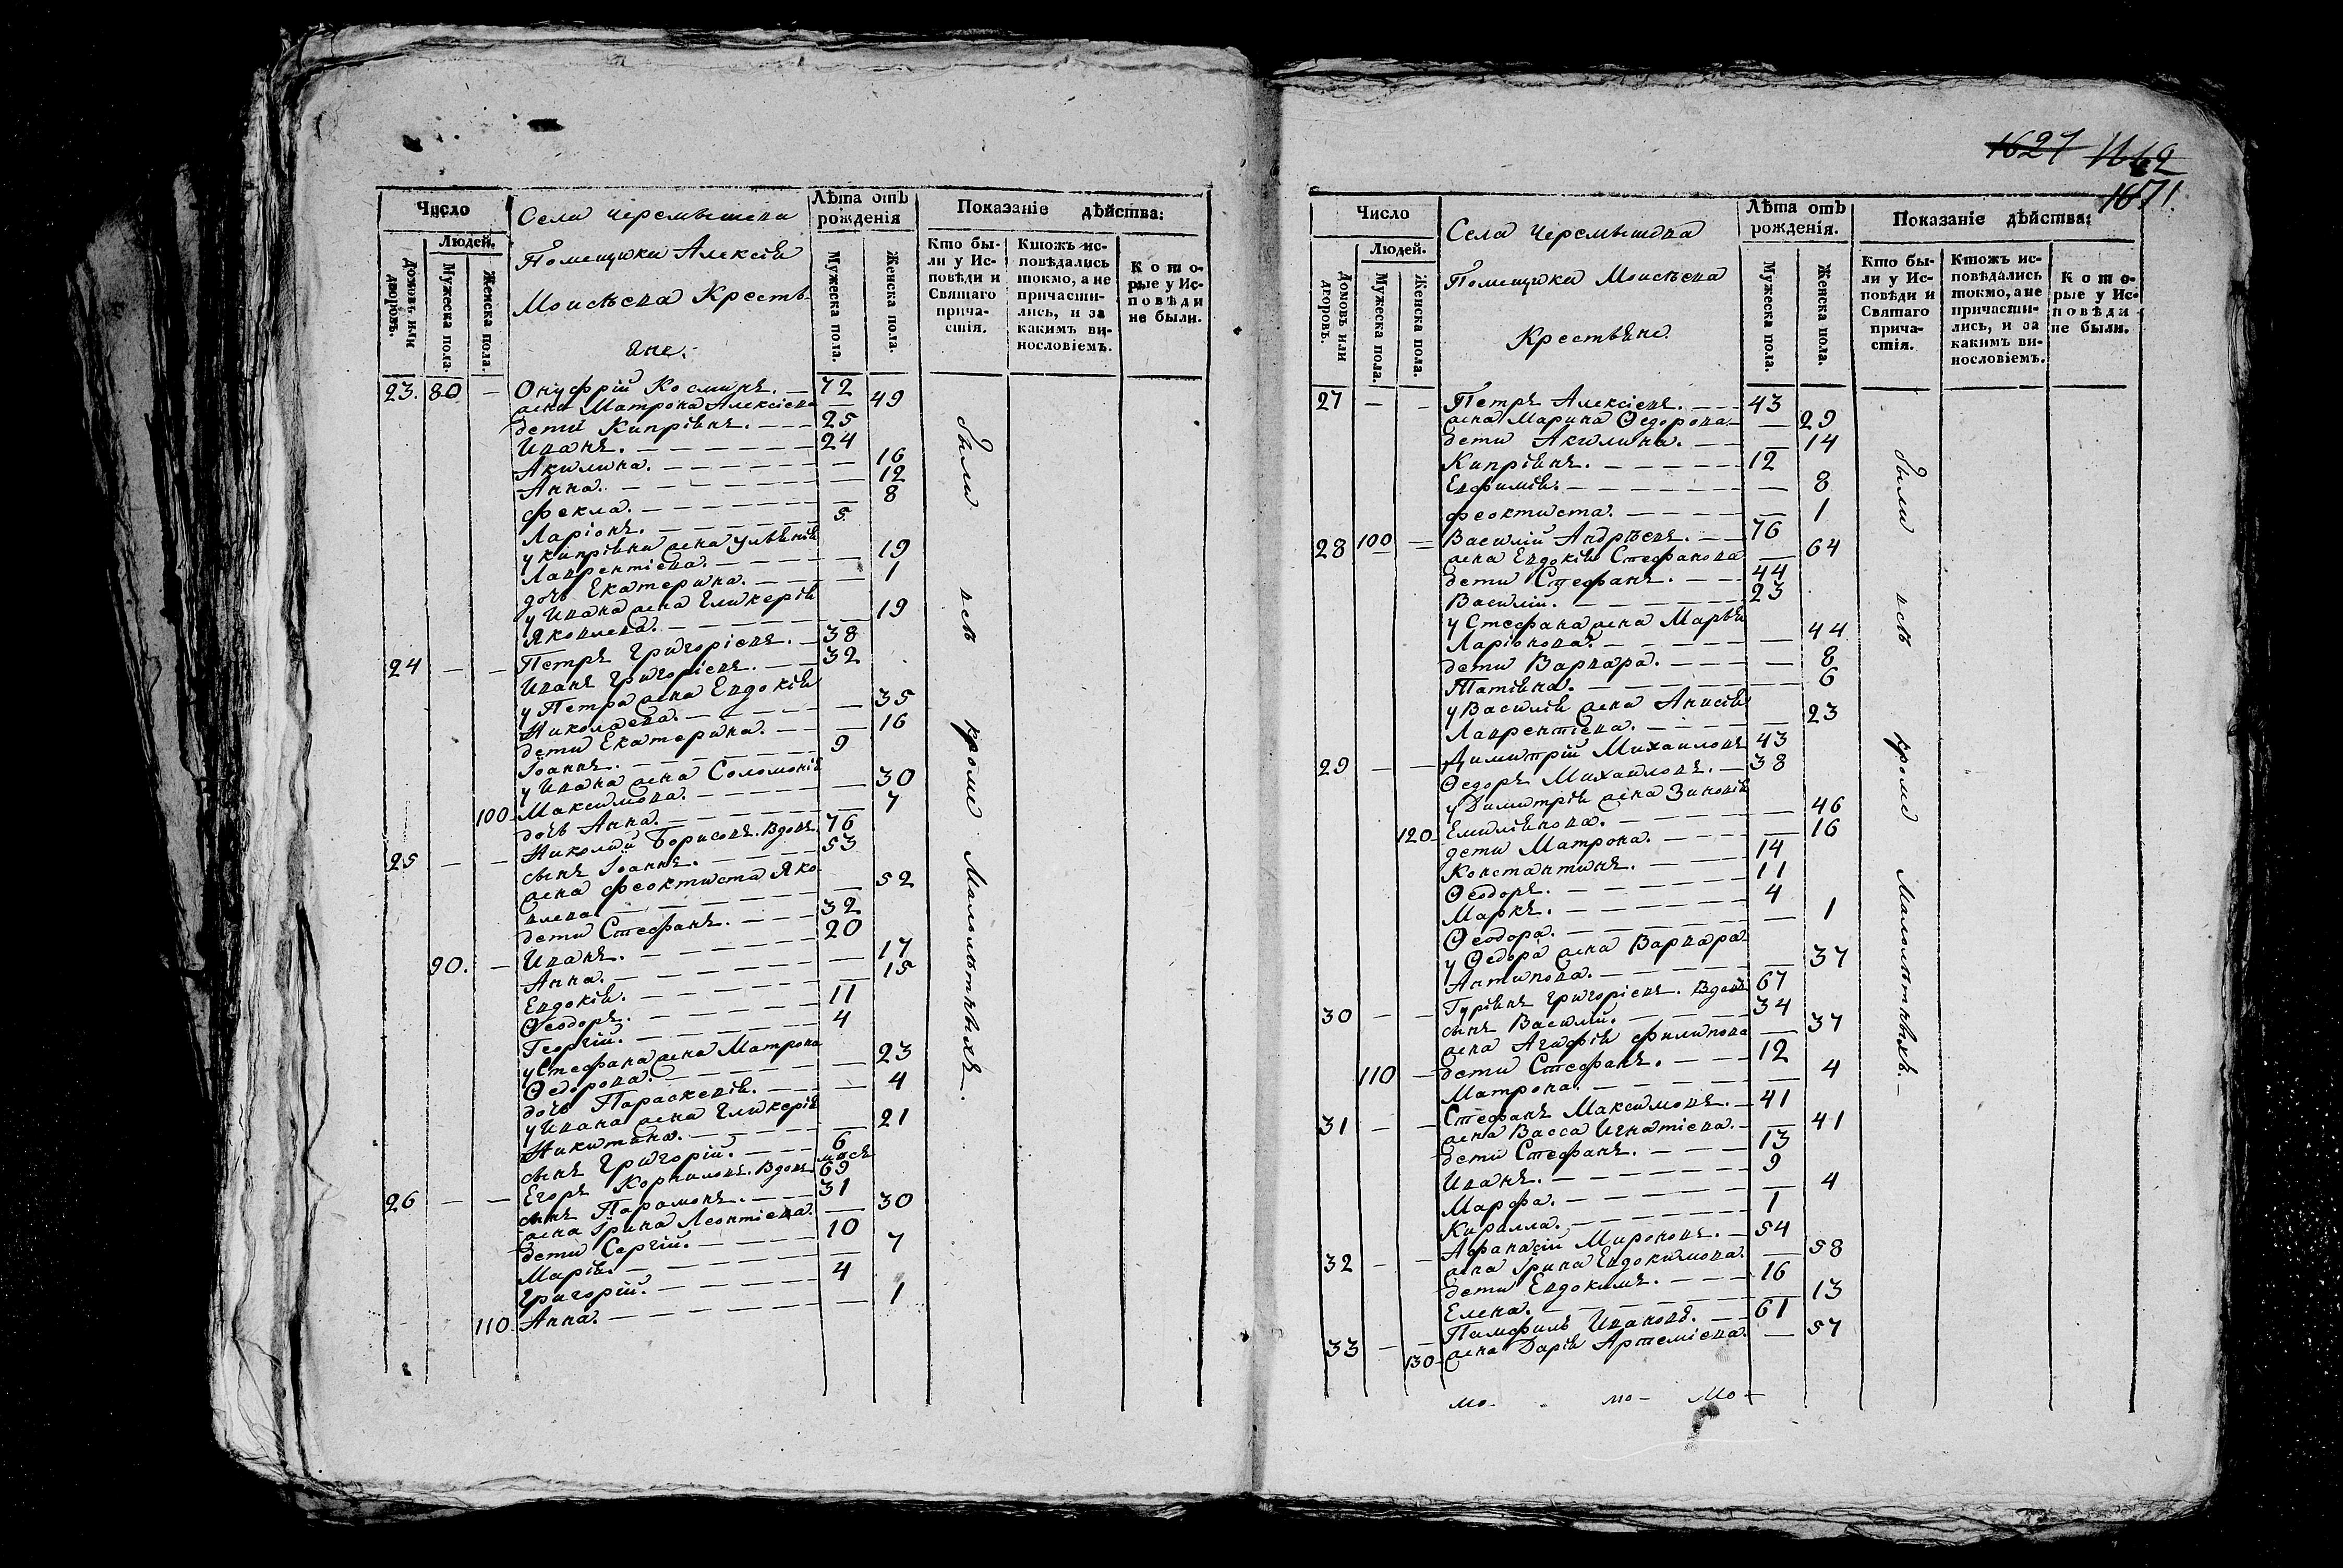 Число
Людей.
Домовъ или дворовъ.
Мужеска пола.
Женска пола.
Села Черемышева
Помещика Алексѣя
Моисѣева Кресть-
яне.
Лѣта отъ рожденія
Мужеска пола.
Женска пола.
Показаніе дѣйства:
Кто бы-
ли у Ис-
повѣди и
Святаго
прича-
стія.
Ктожъ ис-
повѣдались
токмо, а не
причасти-
лись, и за
какимъ ви-
нословіемъ.
Кото-
рые у Ис-
повѣди
не были.
23. 80 — Онуфрій Косминъ. — 72
жена Матрона Алексіева — 49
дети Кипріянъ. — 25
Иванъ. — 24
Акилина. — 16
Анна. — 12
Фекла. — 8
Ларіонъ. — 5
у Кипріяна жена Ульянія
Лаврентіева. — 19
дочь Екатерина. — 1
у Ивана жена Гликерія
Яковлева. — 19
24 — — Петръ Григоріевъ. — 38
Иванъ Григоріевъ. — 32
у Петра жена Евдокія
Николаева. — 35
дети Екатерина. — 16
Іоаннъ. — 9
у Ивана жена Соломонія
100 Максимова. — 30
дочь Анна. — 7
25 — — Николай Борисовъ. Вдовъ 76
сынъ Іоаннъ. — 53
жена Феоктиста Яко
влева — 52
дети Стефанъ. — 32
90. — Иванъ. — 20
Анна. — 17
Евдокія. — 15
Ѳеодоръ. — 11
Георгій. — 4
у Стефана жена Матрона
Ѳедорова. — 23
дочь Параскевія. — 4
у Ивана жена Гликерія
Никитина. — 21
сынъ Григорій. — 6 мѣсе
26 — — Егоръ Корниловъ. Вдовъ 69
сынъ Парамонъ. — 31
жена Ірина Леонтіева. — 30
дети Сергій. — 10
Марія. — 7
Григорій. — 4
110 Анна. — 1
были всѣ кроме Малолѣтныхъ.
1627 1642
1671.
Число
Людей.
Домовъ или дворовъ.
Мужеска пола.
Женска пола.
Села Черемышева
Помещика Моисѣева
Крестьяне.
Лѣта отъ рожденія.
Мужеска пола.
Женска пола.
Показаніе дѣйства:
Кто бы-
ли у Ис-
повѣди и
Святаго
прича-
стія.
Ктожъ ис-
повѣдались
токмо, а не
причасти-
лись, и за
какимъ ви-
нословіемъ.
Кото-
рые у Ис-
повѣди
не были.
27 — — Петръ Алексіевъ. — 43
жена Марина Ѳедорова — 29
дети Акилина. — 14
Кипріянъ. — 12
Евфимія. — 8
Феоктиста. — 1
28 100 — Василій Андрѣевъ. — 76
жена Евдокія Стефанова — 64
дети Стефанъ. — 44
Василій. — 23
у Стефана жена Марья
Ларіонова. — 44
дети Варвара. — 8
Татіяна. — 6
у Василія жена Анисія
Лаврентіева. — 23
29 — — Димитрій Михаиловъ 43
Ѳедоръ Михаиловъ. — 38
у Димитрія жена Зиновія
120 Емиліянова. — 46
дети Матрона. — 16
Константинъ. — 14
Ѳеодоръ. — 11
Маркъ. — 4
Ѳеодора. — 1
у Ѳедора жена Варвара
Антипова. — 37
30 — — Гуріянъ Григоріевъ. Вдовъ 67
сынъ Василій. — 34
жена Агафія Филипова — 37
110 — дети Стефанъ. — 12
Матрона. — 4
31 — — Стефанъ Максимовъ. — 41
жена Васса Игнатіева. — 41
дети Стефанъ. — 13
Иванъ. — 9
Марфа. — 4
Кирилла. — 1
32 — — Афанасій Мироновъ. — 54
жена Ірина Евдокимова. — 58
дети Евдокимъ. — 16
Елена. — 13
33 — — Памфилъ Ивановъ. — 61
130 жена Дарія Артеміева. — 57
были всѣ кроме Малолѣтныхъ. —
мо- мо- Мо-